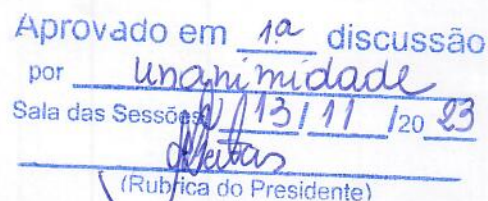 Aprovado em 1ª discussão
por unanimidade
Sala das Sessões 13/11/2023
(Rubrica do Presidente)